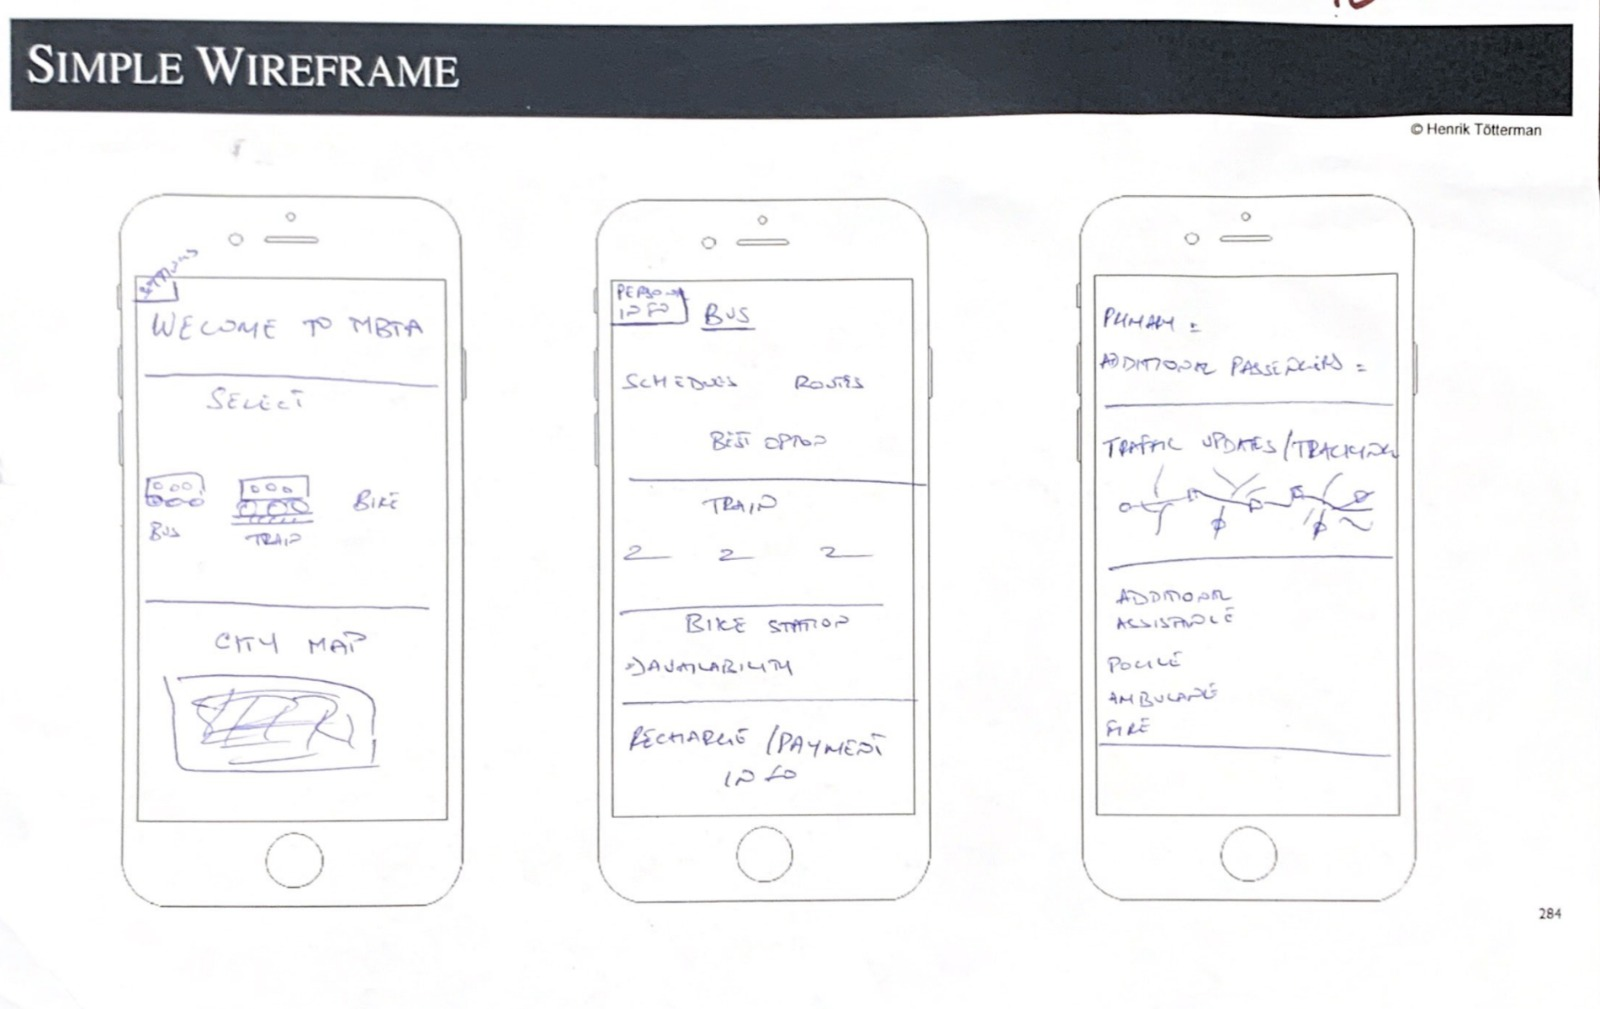 SIMPLE WIREFRAME
© Henrik Tötterman
WELCOME TO MBTA
SELECT
BUS
TRAIN
BIKE
CITY MAP
PERSONAL
INFO
BUS
SCHEDULES ROUTES
BEST OPTION
TRAIN
BIKE STATION
AVAILABILITY
RECHARGE / PAYMENT
INFO
PRIMARY =
ADDITIONAL PASSENGERS =
TRAFFIC UPDATES / TRACKING
ADDITIONAL
ASSISTANCE
POLICE
AMBULANCE
FIRE
284